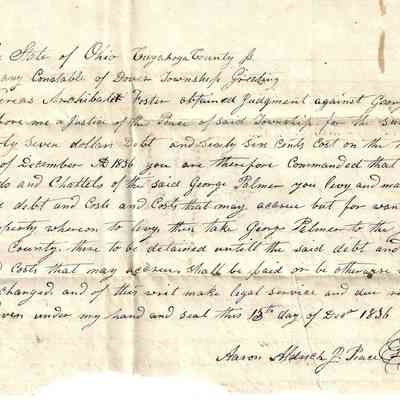 State of Ohio Cuyahoga County Ss.
any Constable of Dover Township Greeting
Archibald Foster obtained Judgment against
before me a Justice of the Peace of said Township for the
Seven dollars Debt and Sixty Six Cents Cost on the
of December AD 1836 you are therefore Commanded that
and Chattels of the said George Palmer you levy and
debt and Costs and Costs that may accrue but for wan
property whereon to levy, then take George Palmer to the
County, there to be detained untill the said debt and
Costs that may accrue, shall be paid or be otherwise
changed and of this writ make legal service and due
under my hand and seal this 13th day of Decr 1836
Aaron Aldrich J. Peace